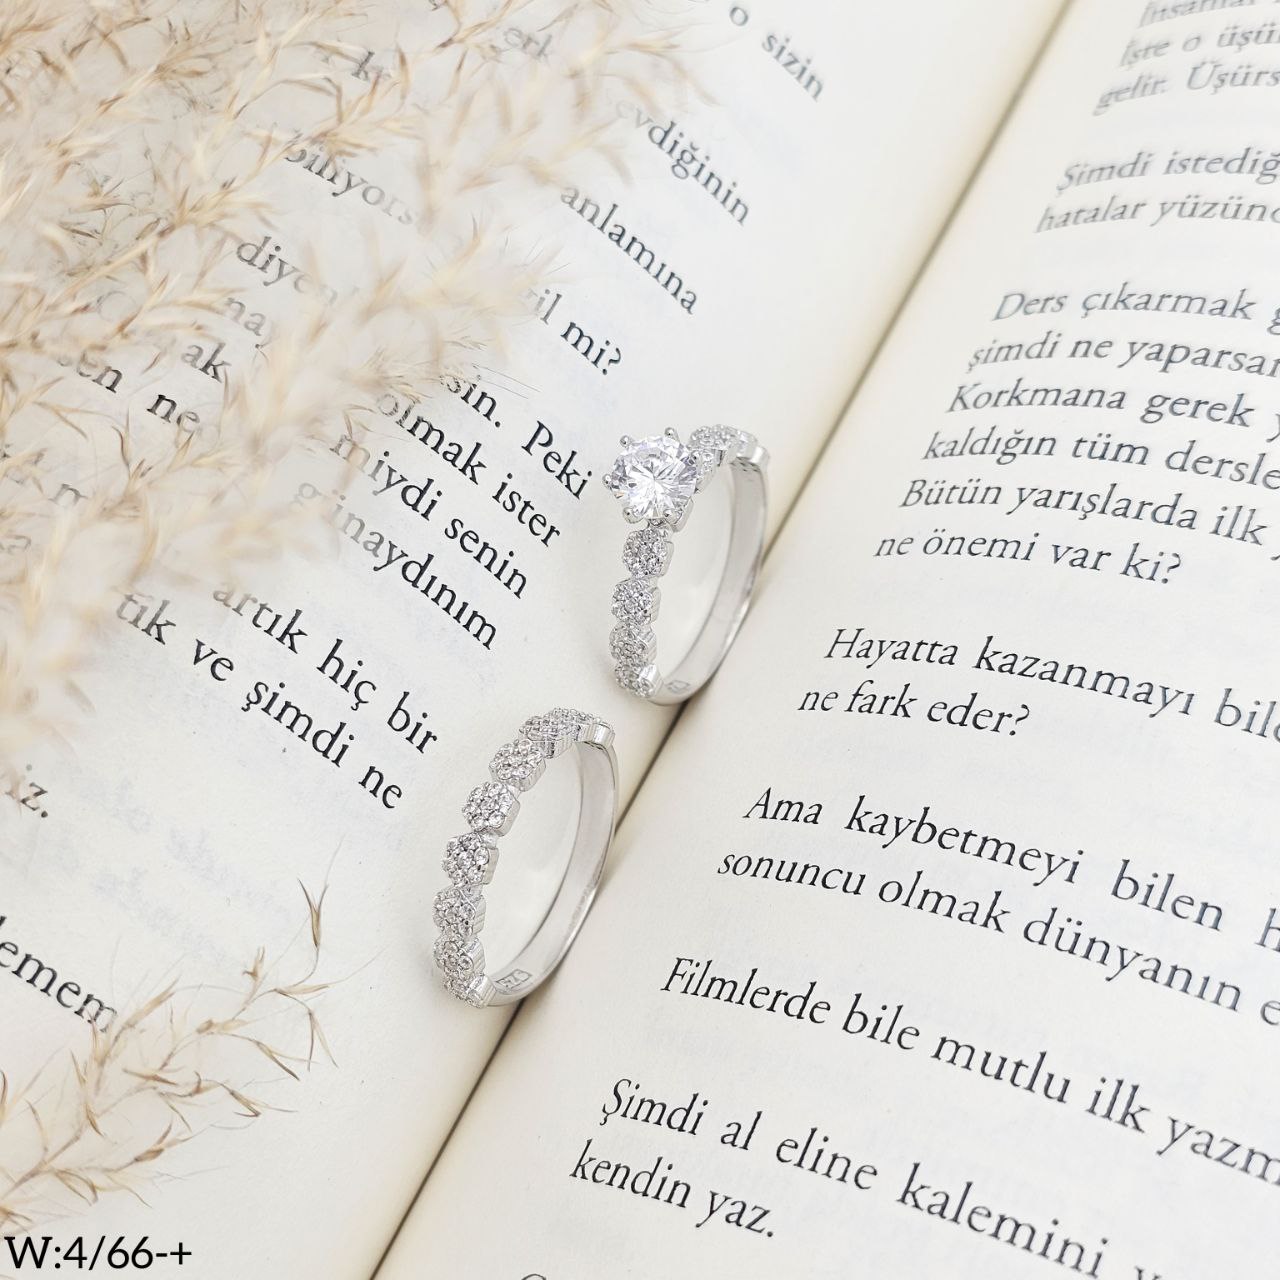 o sizin
evdiğinin
anlamına
mi?
sin. Peki
olmak ister
miydi senin
günaydınım
artık hiç bir
tik ve şimdi ne
iz.
lemem
İşte o üşü
gelir. Üşürs
Şimdi istediğ
hatalar yüzünd
Ders çıkarmak g
şimdi ne yaparsan
Korkmana gerek y
kaldığın tüm dersle
Bütün yarışlarda ilk
ne önemi var ki?
Hayatta kazanmayı bile
ne fark eder?
Ama kaybetmeyi bilen h
sonuncu olmak dünyanın e
Filmlerde bile mutlu ilk yazm
Şimdi al eline kalemini y
kendin yaz.
W:4/66-+